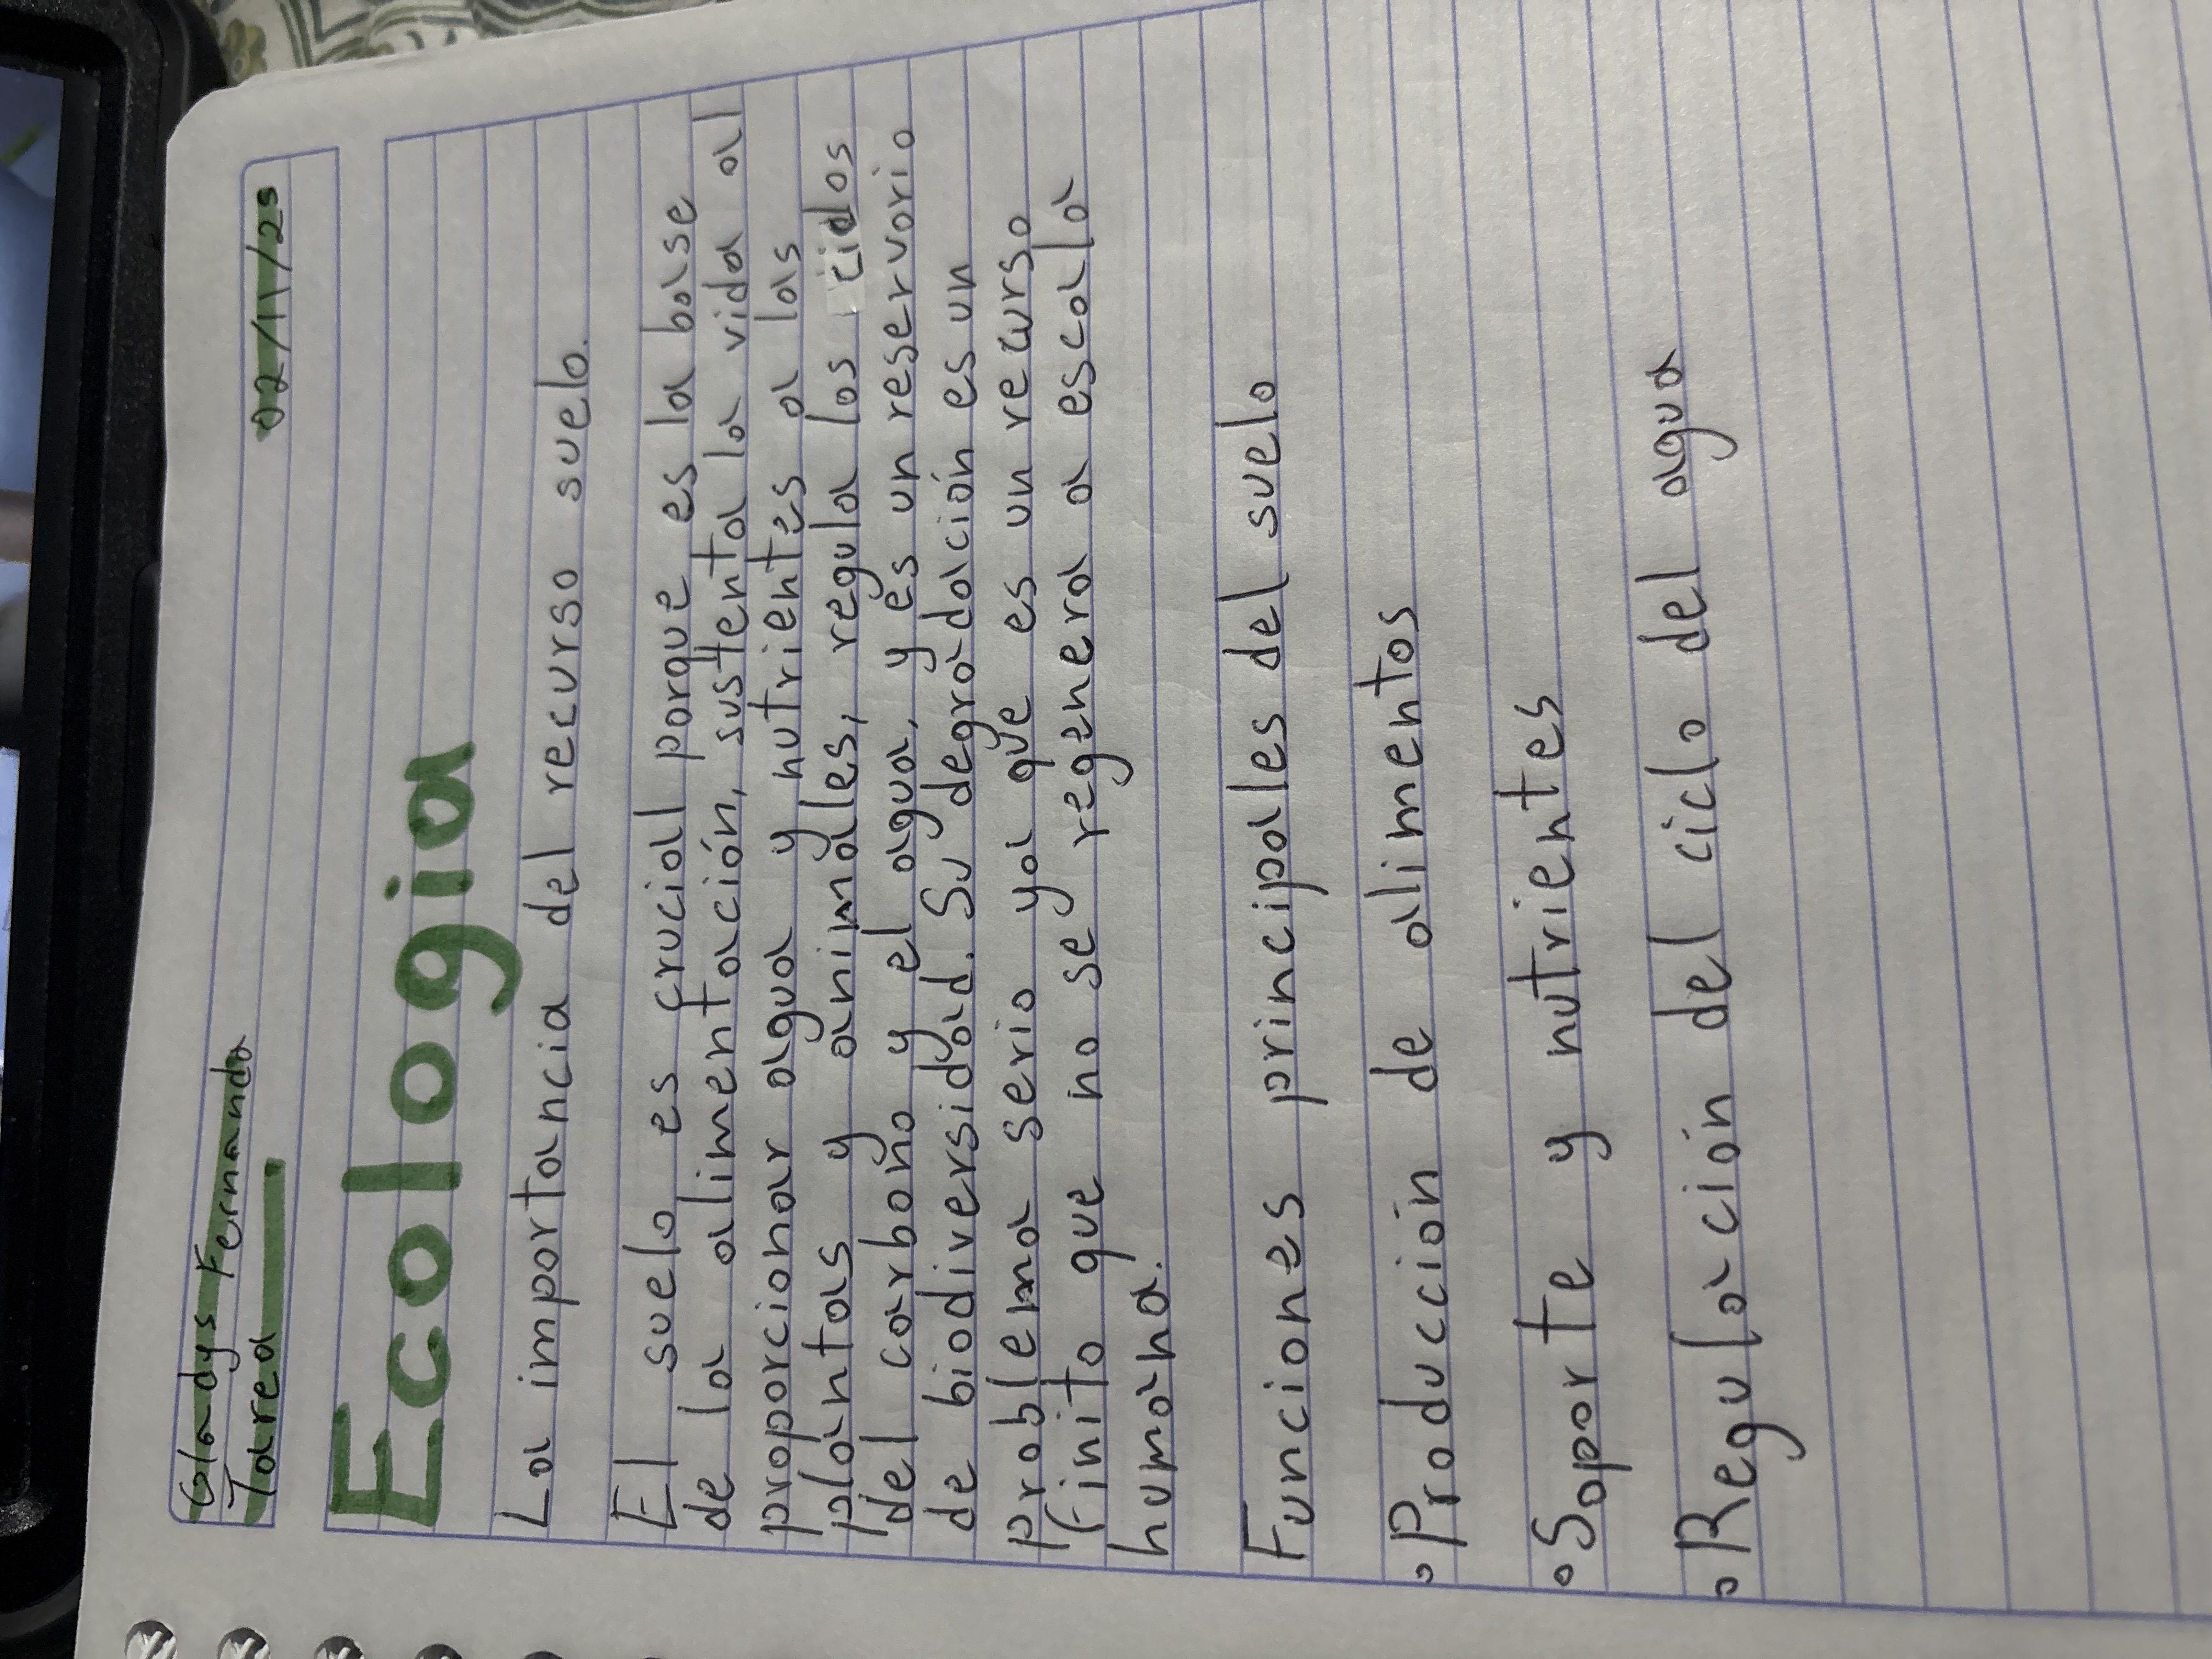 Gladys Fernanda
Tarea
02/11/25
Ecologia
La importancia del recurso suelo.
El suelo es crucial porque es la base
de la alimentación, sustenta la vida al
proporcionar agua y nutrientes a las
plantas y animales, regula los ciclos
del carbono y el agua, y es un reservorio
de biodiversidad. Su degradación es un
problema serio ya que es un recurso
finito que no se regenera a escala
humana.
Funciones principales del suelo
• Producción de alimentos
• Soporte y nutrientes
• Regulación del ciclo del agua